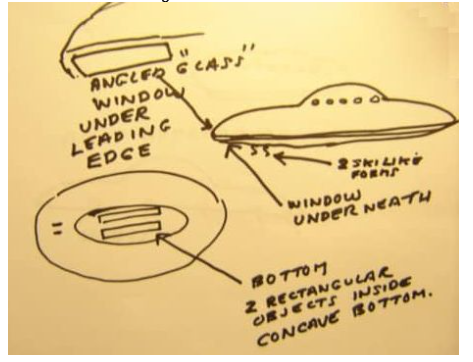 ANGLED "GLASS"
WINDOW
UNDER
LEADING
EDGE
2 SKI LIKE
FORMS
WINDOW
UNDERNEATH
BOTTOM
2 RECTANGULAR
OBJECTS INSIDE
CONCAVE BOTTOM.